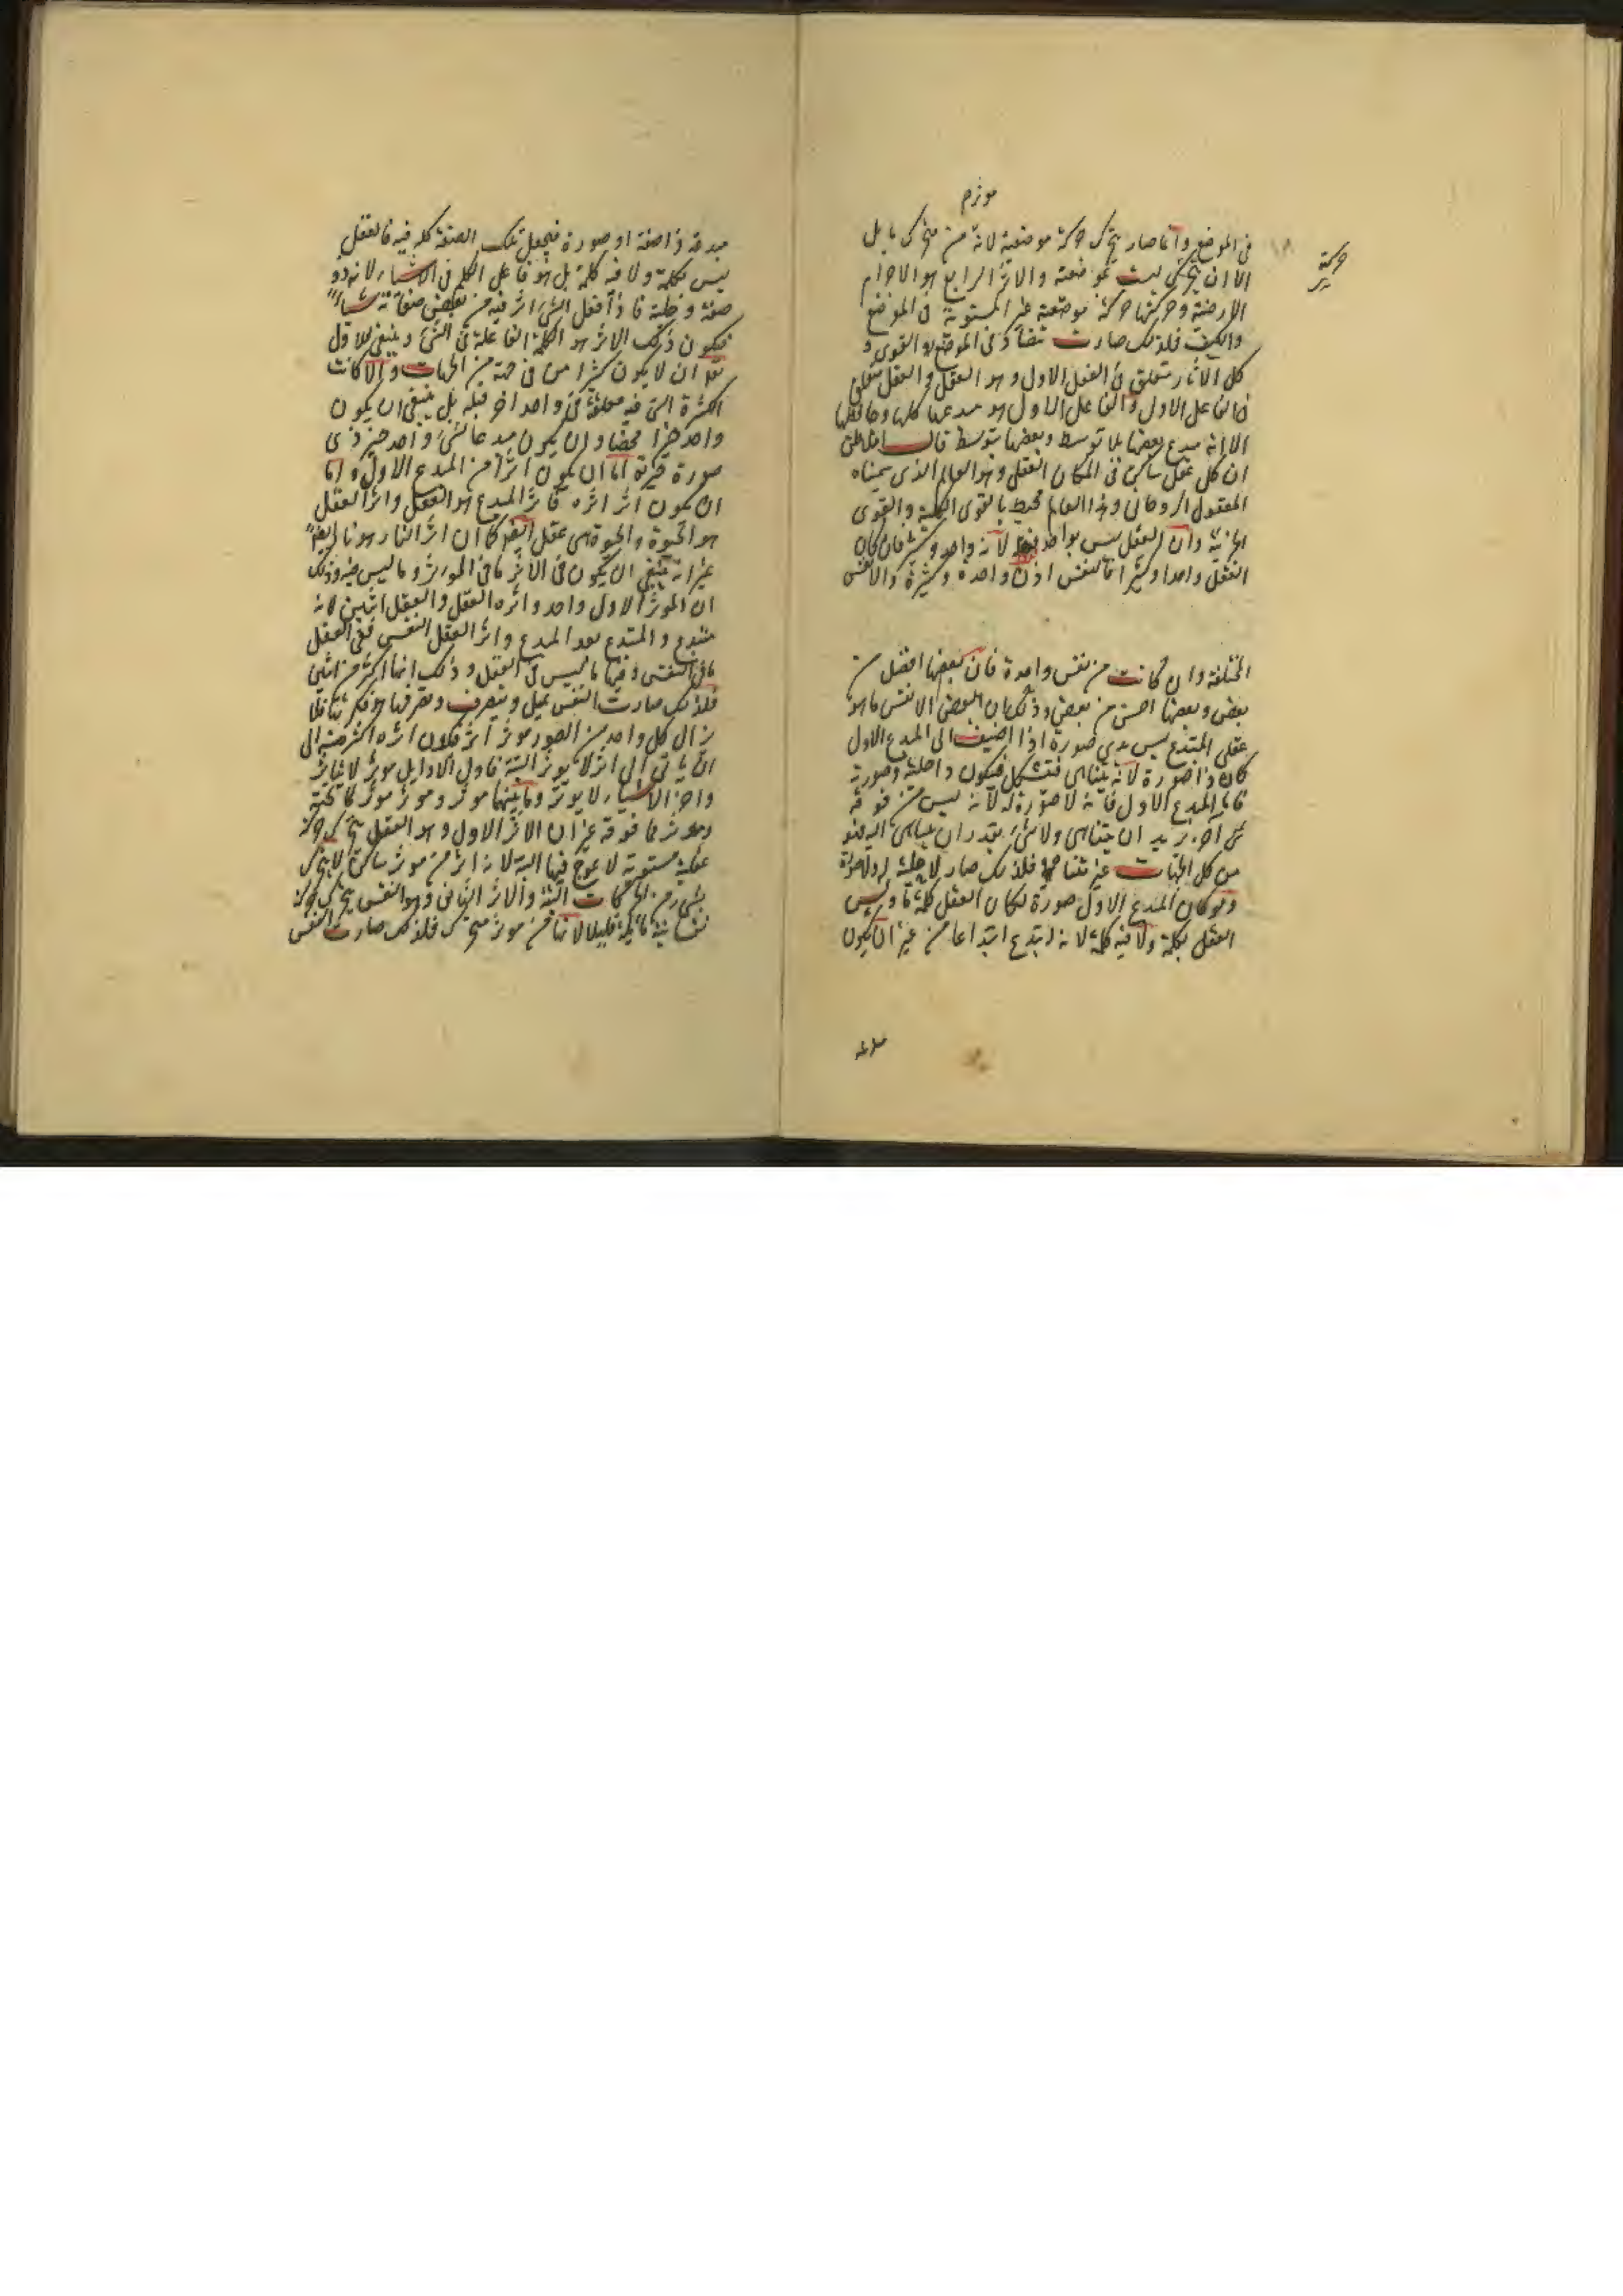 موثر م
في الموضع وانما صار يتحرك حركة موضعية لانه من متحرك مايل
الا ان يتحرك ليست بموضعية والاثر الرابع هو الاجرام
الارضية وحركتها حركة موضعية غير المستوية في الموضع
والكيف فلذلك صارت تتضاد في الموضع والقوى و
كل الآثار متعلق في الفعل الاول وهو العقل والعقل متعلق
في الفاعل الاول والفاعل الاول هو مبدعها كلها وحافظها
الا انه مبدع بعضها بلا توسط وبعضها بتوسط قال افلاطن
ان كل عقل ساكن في المكان العقلي وهو العالم الذي سميناه
المعقول الروحاني وهذا العالم محيط بالقوى الكلية والقوى
الجزئية وان العقل ليس بواحد فقط لانه واحد وكثير فان كان
العقل واحدا وكثيرا فالنفس اذن واحدة وكثيرة والانفس
المختلفة وان كانت من نفس واحدة فان بعضها افضل من
بعض وبعضها احسن من بعض وذلك بان لبعض الانفس ما هو
عقلي المبتدع ليس بذي صورة اذا اضيف الى المبدع الاول
كان ذا صورة لانه يتناهى فتشكل فيكون ذا حلية وصورة
فاما المبدع الاول فانه لا صورة له لانه ليس من فوقه
شيء آخر يريد ان يتناهى ولا شيء يقدر ان يتناهى اليه فهو
من كل الجهات غير متناه فلذلك صار لا حلية له ولا صورة
ولو كان المبدع الاول صورة لكان العقل كلمة ما وليس
العقل بكلمة ولا فيه كلمة لانه ابتدع ابتداعا من غير ان يكون
حركة
مبدعه ذا صفة او صورة فيجعل تلك الصفة كله فيه فالعقل
ليس بكلمة ولا فيه كلمة بل هو فاعل الكلم في الاشياء لانه ذو
صفة وحلية فاذا فعل الشيء اثر فيه من بعض صفاته شيئا
فيكون ذلك الاثر هو الكلمة الفاعلة في الشيء وينبغي للاول
ان لا يكون كثيرا من في جهة من الجهات والا كانت
الكثرة التي فيه معلقة في واحد آخر قبله بل ينبغي ان يكون
واحدا خيرا محضا وان يكون مبدعا لشيء واحد خير ذي
صورة خيرية اما ان يكون اثرا من المبدع الاول واما
ان يكون اثر اثره فاثر المبدع هو العقل واثر العقل
هو الحيوة والحيوة هي عقل ايضا كما ان اثر النار هو نار ايضا
غير انه ينبغي ان يكون في الاثر ما في المؤثر وما ليس فيه وذلك
ان المؤثر الاول واحد واثره العقل والعقل اثنين لانه
مبتدع والمبتدع بعد المبدع واثر العقل النفس ففي العقل
ما في النفس وفيها ما ليس في العقل وذلك انها اكثر من اثنين
فلذلك صارت النفس تميل وتتصرف وتصرفها هو فكرتها فلا
يزال كل واحد من الصور موثر اثر فيكون اثره اكثر منه الى
ان ياتي الى اثر لا يؤثر البتة فاول الاوايل موثر لا يتاثر
وآخر الاشياء لا يؤثر وما بينهما موثر وموثر موثر فيما تحته
وموثر مما فوقه غير ان الاثر الاول وهو العقل يتحرك حركة
عقلية مستوية لا عوج فيها البتة لانه اثر من موثر ساكن لا يتحرك
بشيء من الحركات البتة والاثر الثاني وهو النفس يتحرك حركة
نفسانية مايلة قليلا لانها من موثر متحرك فلذلك صارت النفس